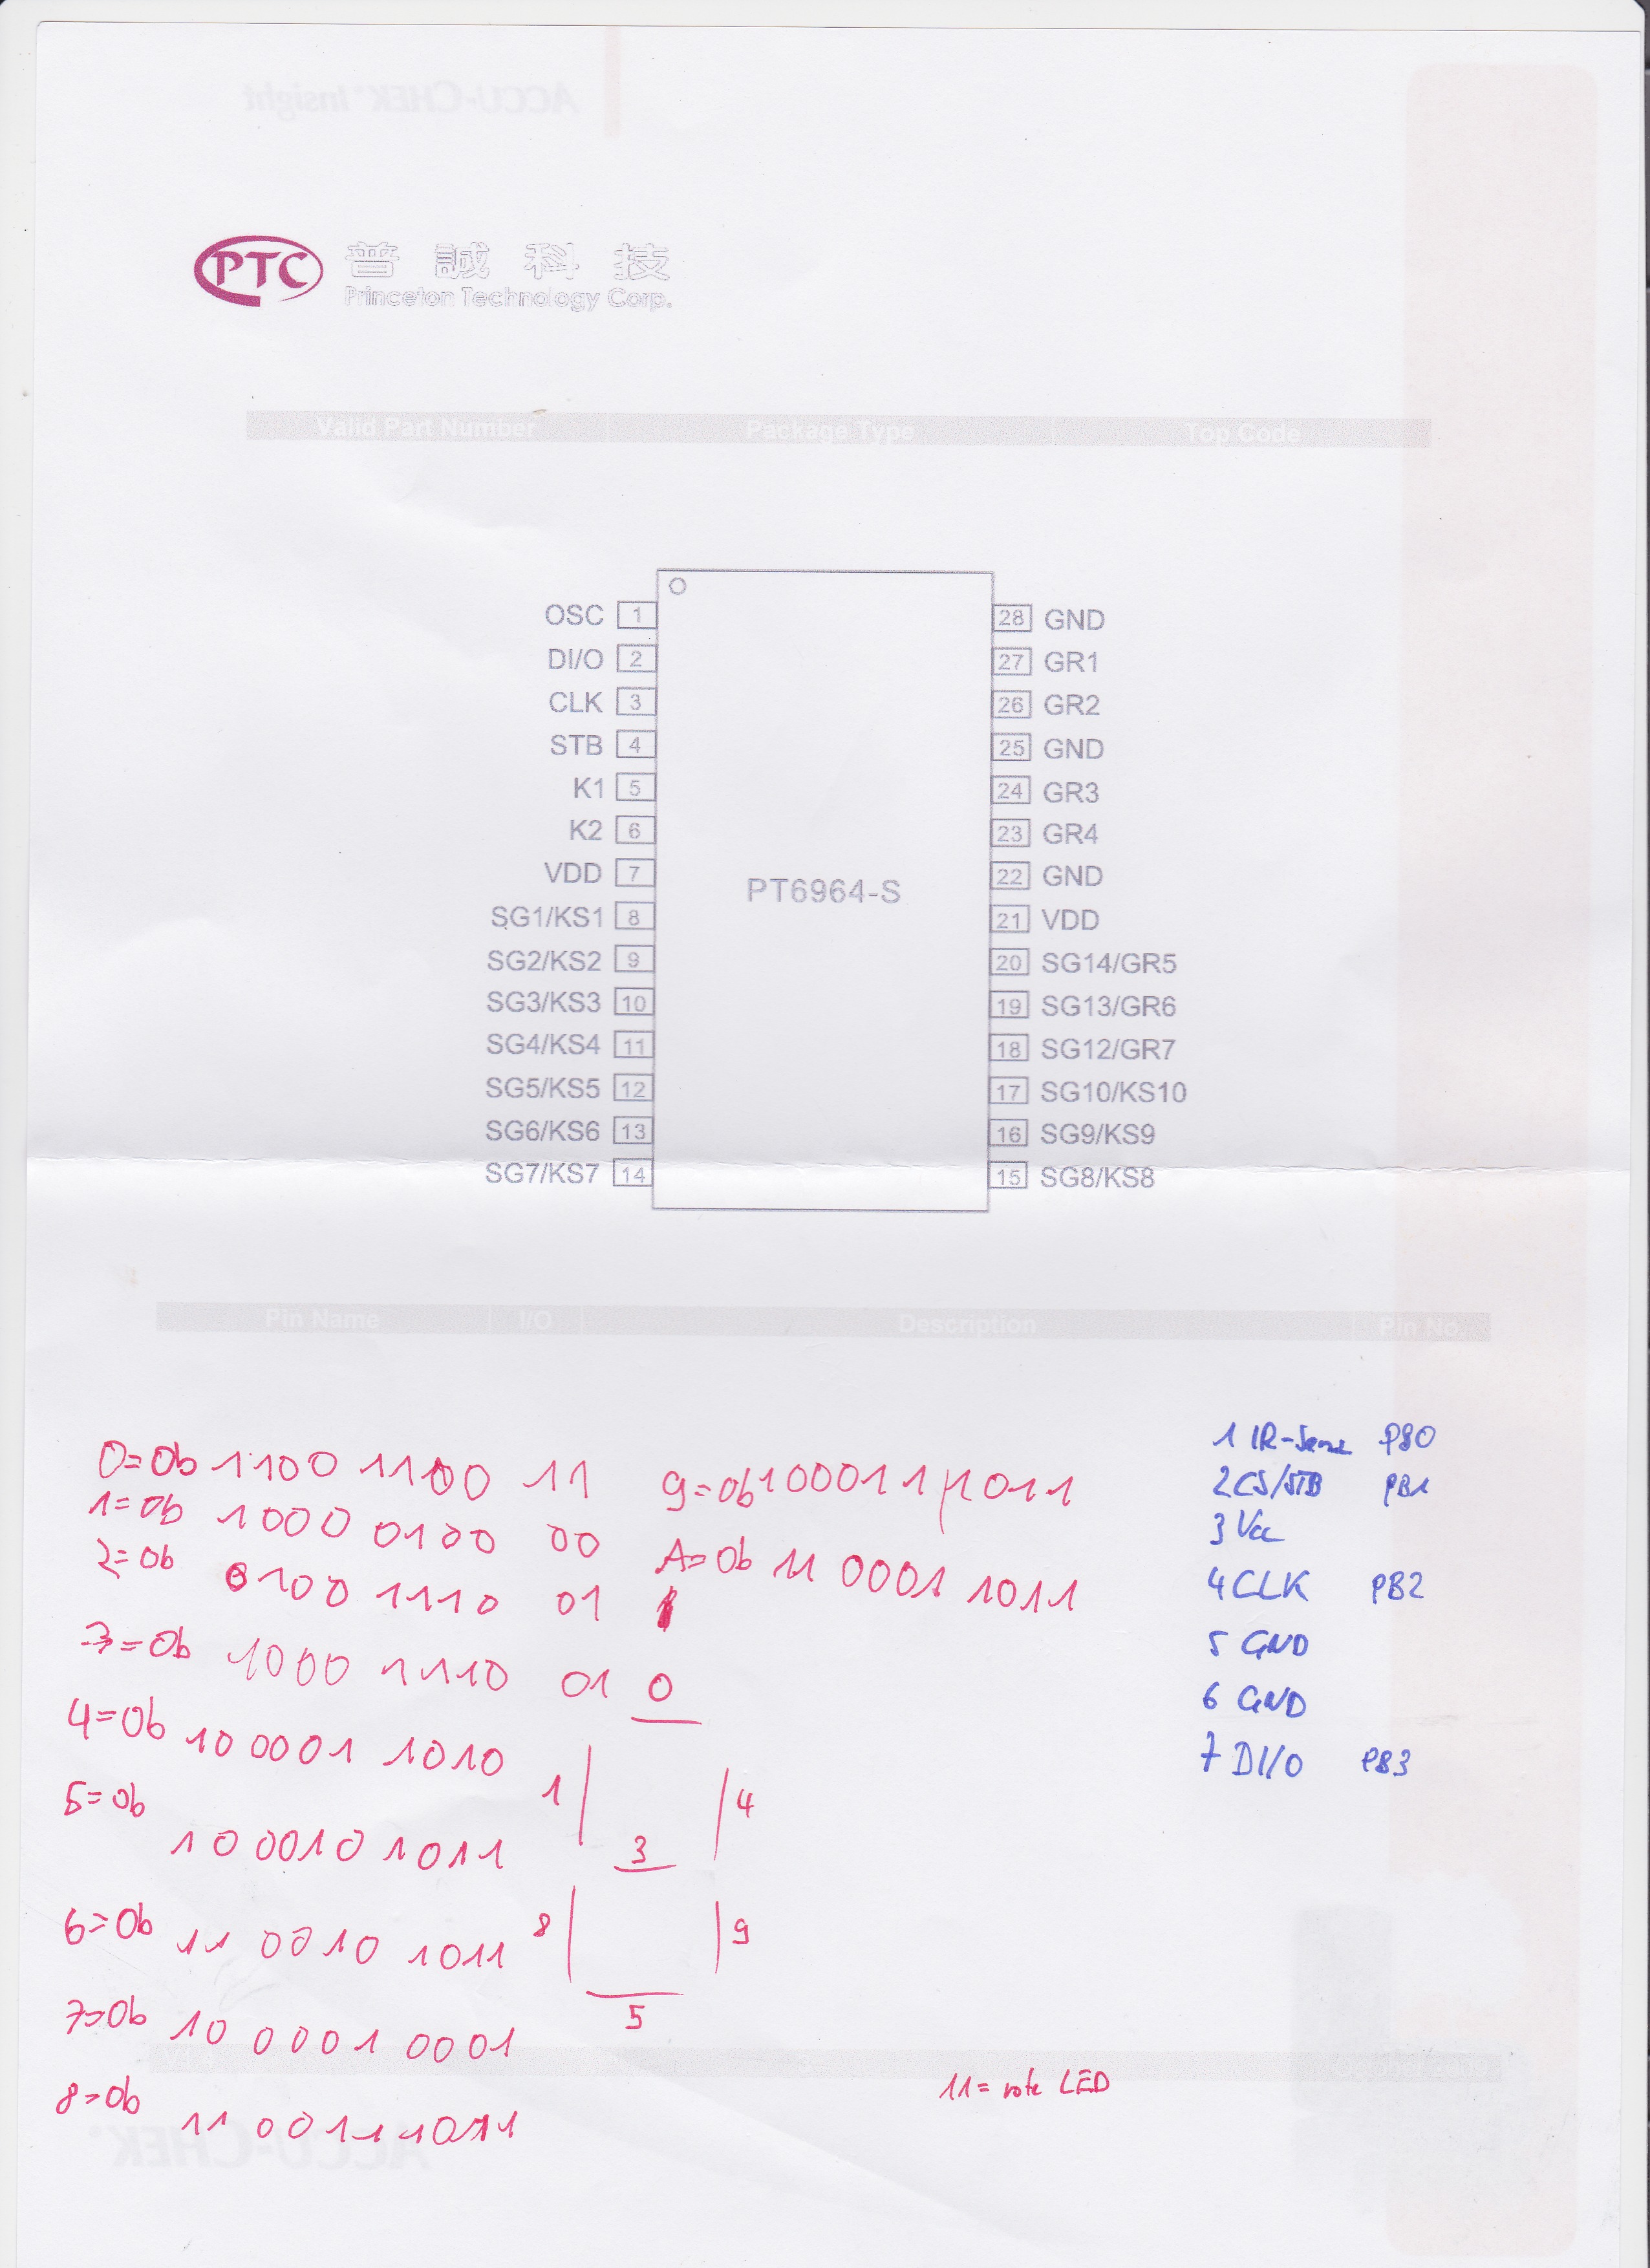 ACCU-CHEK® Insight
PTC 普誠科技
Princeton Technology Corp.
Valid Part Number Package Type Top Code
OSC 1 28 GND
DI/O 2 27 GR1
CLK 3 26 GR2
STB 4 25 GND
K1 5 24 GR3
K2 6 23 GR4
VDD 7 22 GND
PT6964-S
SG1/KS1 8 21 VDD
SG2/KS2 9 20 SG14/GR5
SG3/KS3 10 19 SG13/GR6
SG4/KS4 11 18 SG12/GR7
SG5/KS5 12 17 SG10/KS10
SG6/KS6 13 16 SG9/KS9
SG7/KS7 14 15 SG8/KS8
Pin Name I/O Description Pin No.
0=0b 1100 1100 11
1=0b 1000 0100 00
2=0b 0100 1110 01
3=0b 1000 1110 01
4=0b 10 0001 1010
5=0b
10 0010 1011
6=0b 11 0010 1011
7=0b 10 0001 0001
8=0b 11 0011 1011
9=0b 100011 1011
A=0b 11 0001 1011
0
1 4
3
8 9
5
1 IR-Sens PB0
2 CS/STB PB1
3 Vcc
4 CLK PB2
5 GND
6 GND
7 DI/O PB3
11= rote LED
ACCU-CHEK®